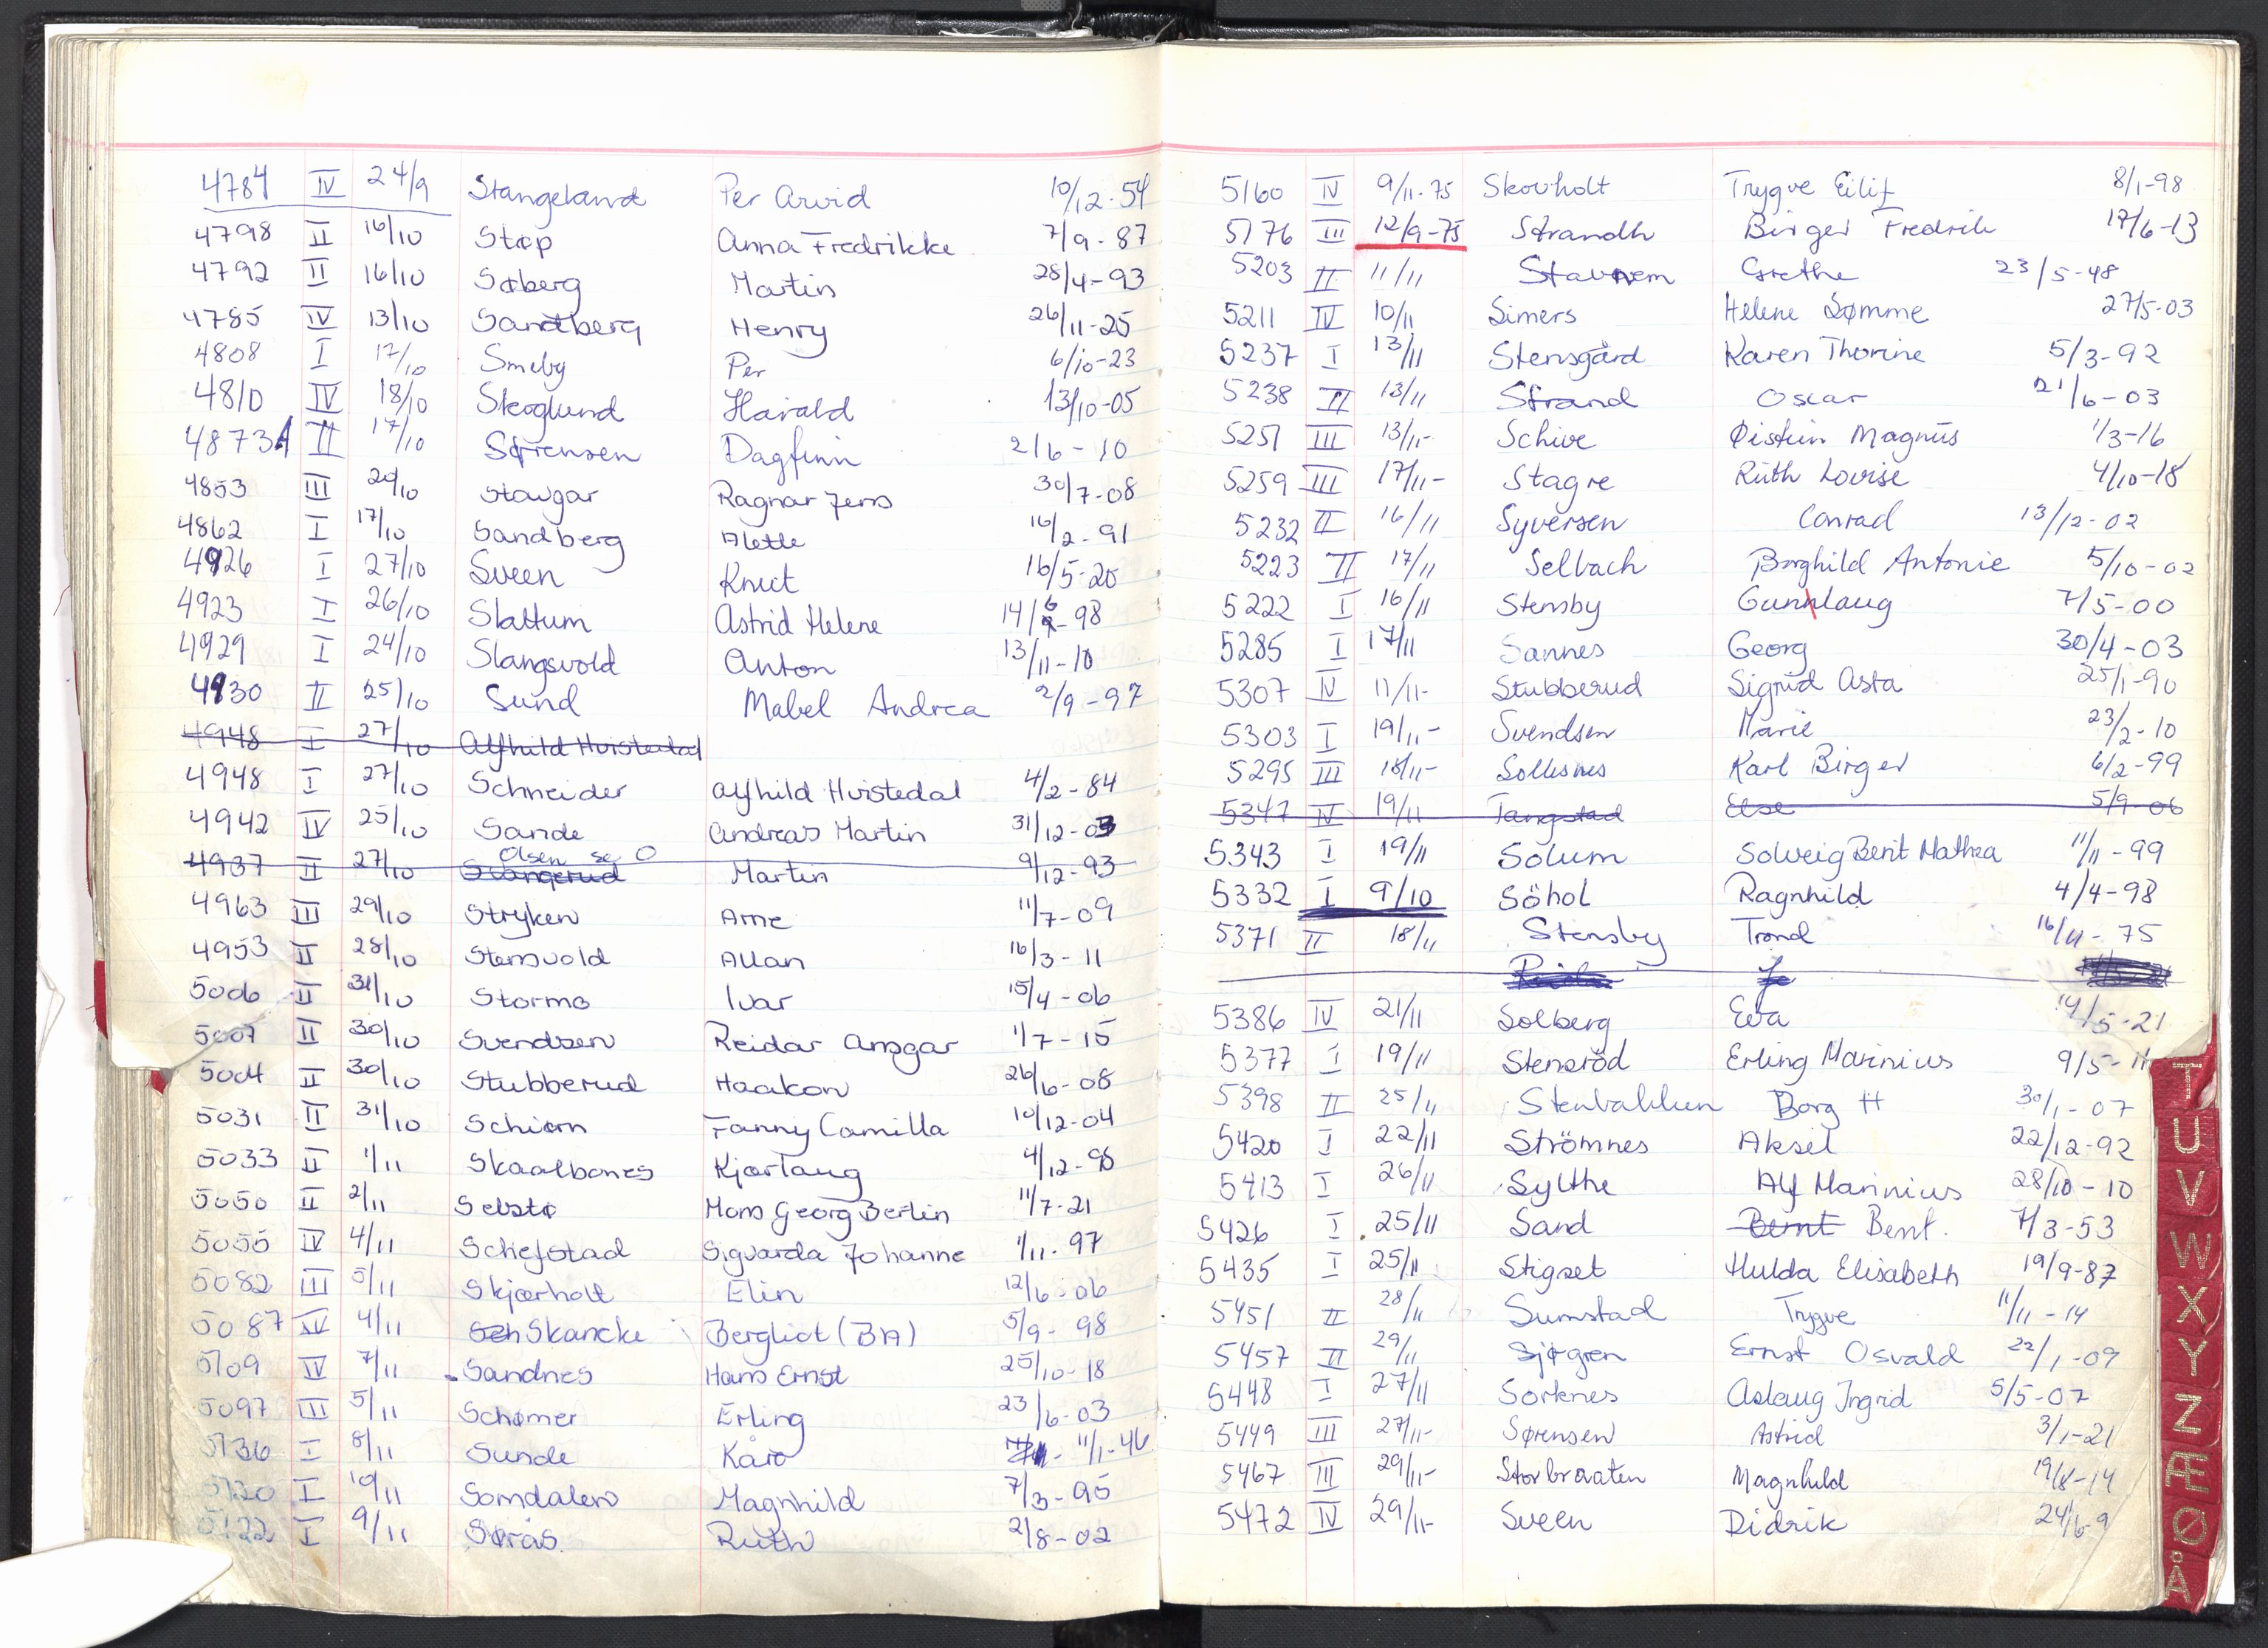 4784 IV 24/9 Stangeland Per Arvid 10/12-54
4798 II 16/10 Støp Anna Fredrikke 7/9-87
4792 II 16/10 Søberg Martin 28/4-93
4785 IV 13/10 Sandberg Henry 26/11-25
4808 I 17/10 Smeby Per 6/10-23
4810 IV 18/10 Skoglund Harald 13/10-05
4873A II 17/10 Sørensen Dagfinn 2/6-10
4853 III 20/10 Stavgar Ragnar Jens 30/7-08
4862 I 17/10 Sandberg Alette 16/2-91
4926 I 27/10 Sveen Knut 16/5-20
4923 I 26/10 Slattum Astrid Helene 14/6-98
4929 I 24/10 Slangsvold Anton 13/11-10
4930 II 25/10 Sund Mabel Andrea 2/9-97
4948 I 27/10 Alfhild Hvistedal
4948 I 27/10 Schneider Alfhild Hvistedal 4/2-84
4942 IV 25/10 Sande Andreas Martin 31/12-03
Olsen se O
4937 II 27/10 Slangerud Martin 9/12-93
4963 III 29/10 Stryken Arne 11/7-09
4953 II 28/10 Stensvold Allan 16/3-11
5006 II 31/10 Stormo Ivar 15/4-06
5007 II 30/10 Svendsen Reidar Ansgar 1/7-15
5004 II 30/10 Stubberud Haakon 26/6-08
5031 II 31/10 Schiørn Fanny Camilla 10/12-04
5033 II 1/11 Skaalbones Kjærlaug 4/12-98
5050 II 2/11 Selstø Mons Georg Berlin 11/7-21
5055 IV 4/11 Schefstad Sigvarda Johanne 1/11-97
5082 III 5/11 Skjærholt Elin 12/6-06
5087 IV 4/11 Sch Skancke Bergliot (BA) 5/9-98
5109 IV 7/11 Sandnes Hans Ernst 25/10-18
5097 III 5/11 Schømer Erling 23/6-03
5136 I 8/11 Sunde Kåre 11/1-46
5120 I 10/11 Somdalen Magnhild 7/3-95
5122 I 9/11 Sørås Ruth 2/8-02
5160 IV 9/11-75 Skovholt Trygve Eilif 8/1-98
5176 III 12/9-75 Strandh Birger Fredrik 17/6-13
5203 II 11/11 Stavnem Grethe 23/5-48
5211 IV 10/11 Simers Helene Sømme 27/5-03
5237 I 13/11 Stensgård Karen Thorine 5/3-92
5238 II 13/11 Strand Oscar 21/6-03
5251 III 13/11- Schive Øistein Magnus 1/3-16
5259 III 17/11- Stagre Ruth Lovise 4/10-18
5232 II 16/11 Syversen Conrad 13/12-02
5223 II 17/11 Selbach Borghild Antonie 5/10-02
5222 I 16/11 Stensby Gunnlaug 7/5-00
5285 I 17/11 Sannes Georg 30/4-03
5307 IV 17/11- Stubberud Sigrid Asta 25/1-90
5303 I 19/11- Svendsen Marie 23/2-10
5295 III 18/11- Sollesnes Karl Birger 6/2-99
5347 IV 19/11 Tangstad Else 5/9-06
5343 I 19/11 Solum Solveig Berit Mathea 11/11-99
5332 I 9/10 Söhol Ragnhild 4/4-98
5371 II 18/11 Stensby Trond 16/11-75
5386 IV 21/11 Solberg Eva 14/5-21
5377 I 19/11 Stensröd Erling Marinius 9/5-11
5398 II 25/11 Stenbakken Borg H 30/1-07
5420 I 22/11 Strömnes Aksel 22/12-92
5413 I 26/11 Sylthe Alf Marinius 28/10-10
5426 I 25/11 Sand Bernt Bent. 7/3-53
5435 I 25/11 Stigset Hulda Elisabeth 19/9-87
5451 II 28/11 Sumstad Trygve 11/11-14
5457 II 29/11 Sjøgren Ernst Osvald 22/1-09
5448 I 27/11 Sorknes Aslaug Ingrid 5/5-07
5449 III 27/11- Sørensen Astrid 3/1-21
5467 III 29/11- Storbraaten Magnhild 19/8-14
5472 IV 29/11- Sveen Didrik 24/6-9
T
U
V
W
X
Y
Z
Æ
Ø
Å